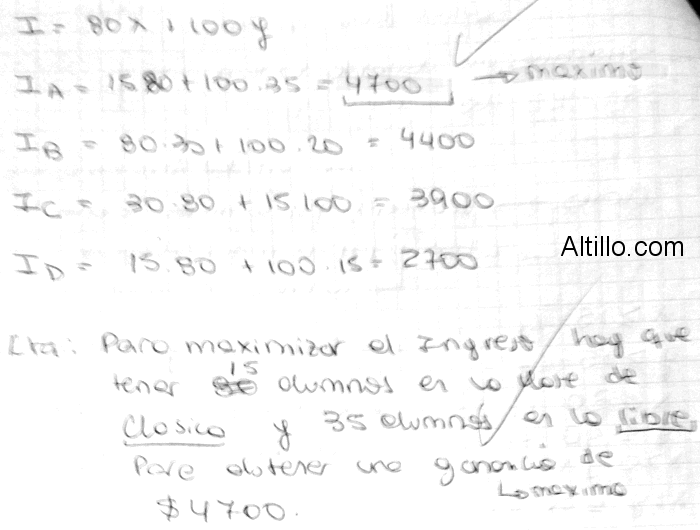 I = 80x + 100y
I_A = 15 80 + 100 . 35 = 4700 → maximo
I_B = 80 . 30 + 100 . 20 = 4400
I_C = 30 . 80 + 15 100 = 3900
Altillo.com
I_D = 15 . 80 + 100 . 15 = 2700
Rta: Para maximizar el Ingreso hay que
15
tener alumnos en la clase de
Clasico y 35 alumnos en la libre
Para obtener una ganancia de
↳ maximo
$4700.